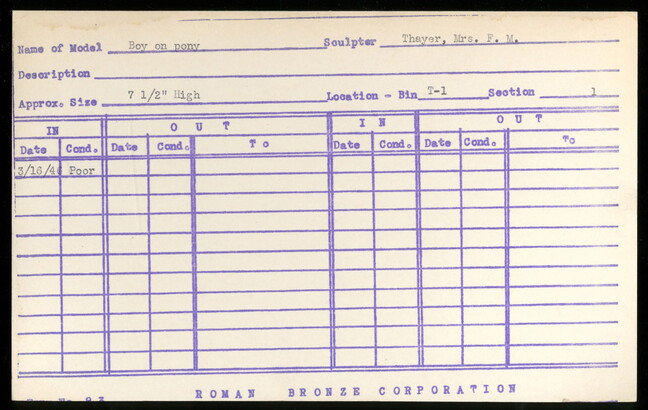 Name of Model Boy on pony Sculptor Thayer, Mrs. F. M.
Description
Approx. Size 7 1/2" High Location - Bin T-1 Section 1
IN OUT IN OUT
Date Cond. Date Cond. To Date Cond. Date Cond. To
3/16/4 Poor
ROMAN BRONZE CORPORATION